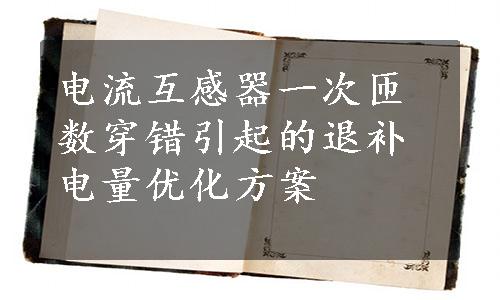 电流互感器一次匝
数穿错引起的退补
电量优化方案